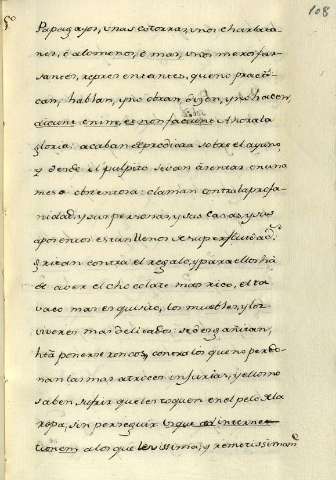 108
5º
Papagayos, unas cotorras, unos charlata-
nes, ó alomenos, é mas, unos meros far-
santes, representantes, que no practi-
can, hablan, y no obran, dizen, y no hacen,
dicunt enim, et non faciunt. Ahora la
gloria: acaban de predicar sobre el ayuno
y desde el pulpito se van á sentar en una
mesa obtentosa: claman contra la profa-
nidad, y sus personas, y sus casas, y sus
aposentos estan llenos de superfluidad.s
Gritan contra el regalo, y para ellos há
de aver el chocolate mas rico, el ta-
vaco mas exquisito, los muebles, y los
viveres mas delicados: se desgañitan,
htâ ponerse roncos, contra los que no perdo-
nan las mas atroces injurias, y ellos no
saben sufrir que les toquen en el pelo de la
ropa, sin perseguir
tienen a los que levissima, y remotissimam.te